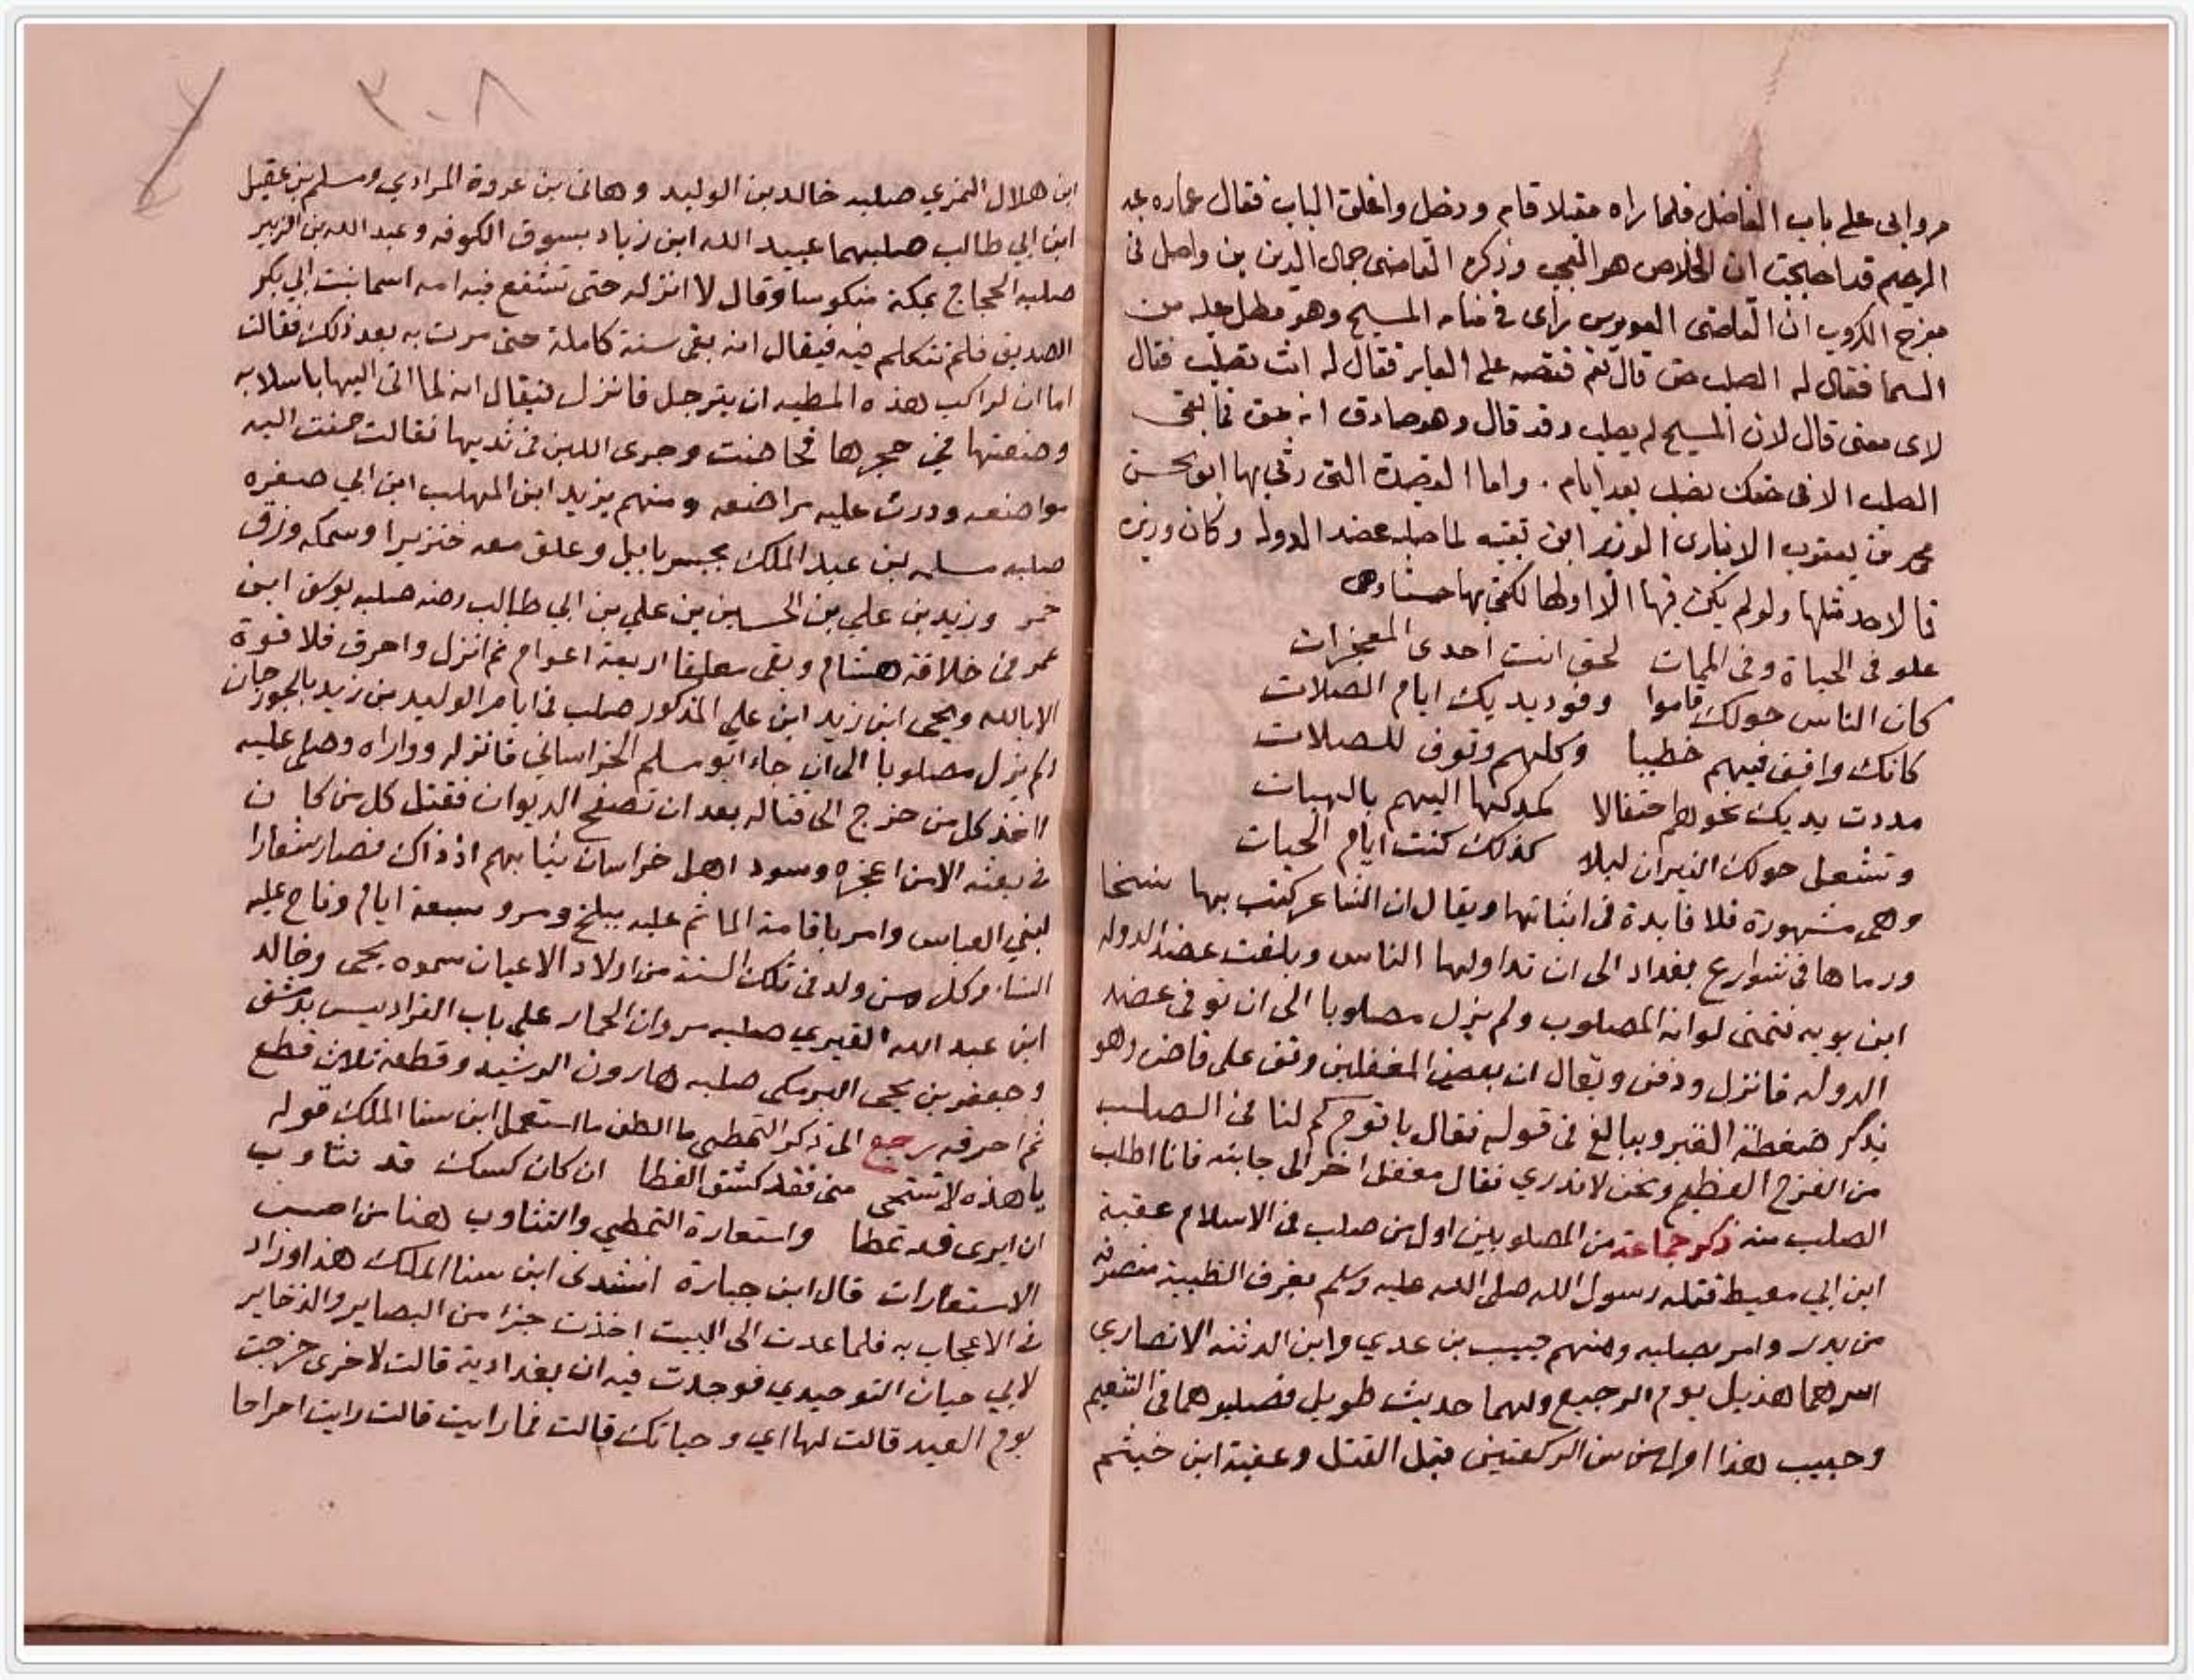 مروا بى على باب الفاضل فلما راه مقبلا قام ودخل واغلق الباب فقال عماره عبد
الرحيم قد احتجب ان الخلاص هو العجب وذكره القاضى جمال الدين بن واصل فى
مفرج الكروب ان القاضى العويرس راى فى منامه المسيح وهو مطل عليه من
السما فقال له الصلب حق قال نعم فقصه على العابر فقال له انت تصلب فقال
لاى معنى قال لان المسيح لم يصلب وقد قال وهو صادق انه حق فما بقى
الصلب الا فى حقك فصلب بعد ايام . واما القصيدة التى رثى بها ابو الحسن
محمد بن يعقوب الانبارى الوزير ابن بقيه لما صلبه عضد الدوله وكان وزيره
فما لاحد مثلها ولو لم يكن فيها الا اولها لكفى بها حسنا وهى
علو فى الحياة وفى الممات لحق انت احدى المعجزات
كان الناس حولك قاموا وفود يديك ايام الصلات
كانك واقف فيهم خطيبا وكلهم وقوف للصلات
مددت يديك نحوهم احتفالا كمدكها اليهم بالهبات
وتشعل حولك النيران ليلا كذلك كنت ايام الحيات
وهى مشهورة فلا فايدة فى اثباتها ويقال ان الشاعر كتب بها نسخا
ورماها فى شوارع بغداد الى ان تداولها الناس وبلغت عضد الدوله
ابن بويه فتمنى لو انه المصلوب ولم يزل مصلوبا الى ان توفى عضد
الدوله فانزل ودفن ويقال ان بعض المغفلين وقف على قاض وهو
يذكر ضغطة القبر ويبالغ فى قوله فقال يا قوم كم لنا فى الصلب
من الفرج العظيم ونحن لا ندري فقال مغفل اخر الى جانبه فانا اطلب
الصلب منه ذكر جماعة من المصلوبين اول من صلب فى الاسلام عقبة
ابن ابي معيط قتله رسول الله صلى الله عليه وسلم بعرق الظبية منصرفه
من بدر وامر بصلبه ومنهم حبيب بن عدي وابن الدثنه الانصاري
اسرهما هذيل يوم الرجيع ولهما حديث طويل فصلبوهما فى التنعيم
وحبيب هذا اول من سن الركعتين قبل القتل وعقبة ابن خيثم
٣٠٨
ابن هلال النمري صلبه خالد بن الوليد وهانى بن عروة المرادي ومسلم بن عقيل
ابن ابي طالب صلبهما عبيد الله ابن زياد بسوق الكوفه وعبد الله بن الزبير
صلبه الحجاج بمكة منكوسا وقال لا انزله حتى تشفع فيه امه اسما بنت ابي بكر
الصديق فلم تتكلم فيه فيقال انه بقى سنة كاملة حتى مرت به بعد ذلك فقالت
اما ان لراكب هذه المطيه ان يترجل فانزل فيقال انه لما اتى اليها باسلابه
وضعتها فى حجرها فحاضت وجرى اللبن فى ثديها فقالت حنت اليه
مواضعه ودرت عليه مراضعه ومنهم يزيد ابن المهلب ابن ابي صفره
صلبه مسلمه بن عبد الملك بجسر بابيل وعلق معه خنزيرا وسمكه وزق
خمر وزيد بن علي بن الحسين بن علي بن ابي طالب رضه صلبه يوسف ابن
عمر فى خلافة هشام وبقى معلقا اربعة اعوام ثم انزل واحرق فلا قوة
الا بالله ويحى ابن زيد ابن علي المذكور صلب فى ايام الوليد بن زيد بالجورجان
لم يزل مصلوبا الى ان جاء ابو مسلم الخراساني فانزله وواراه وصلى عليه
واخذ كل من خرج الى قتاله بعد ان تصفح الديوان فقتل كل من كا ن
فى بعثه الا من اعجزه وسود اهل خراسان ثيابهم اذ ذاك فصار شعارا
لبني العباس وامر باقامة الماتم عليه ببلخ ومرو سبعة ايام وناح عليه
النسا وكل من ولد فى تلك السنة من اولاد الاعيان سموه يحى وخالد
ابن عبد الله القيري صلبه مروان الحمار على باب الفراديس بدمشق
وجعفر بن يحى البرمكى صلبه هارون الرشيد وقطعه ثلاث قطع
ثم احرقه رجع الى ذكر التمطى ما الطف ما استعمل ابن سنا الملك قوله
يا هذه لا تستحى منى فقد كشف الغطا ان كان كسك قد تثاوب
ان ايرى قد تمطا واستعارة التمطي والتثاوب هنا من احسن
الاستعارات قال ابن جبارة انشدنى ابن سنا الملك هذا وزاد
فى الاعجاب به فلما عدت الى البيت اخذت جزا من البصاير والذخاير
لابي حيان التوحيدي فوجدت فيه ان بغدادية قالت لاخرى خرجت
يوم العيد قالت لها اي وحياتك قالت فما رايت قالت رايت احراحا